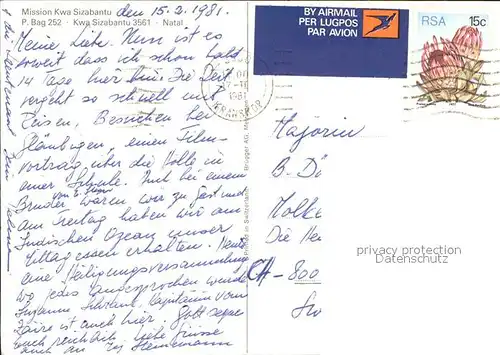 Mission Kwa Sizabantu
P. Bag 252 · Kwa Sizabantu 3561 · Natal
den 15.2.1981.
Meine Liebe. Nun ist es
soweit dass ich schon bald
14 Tage hier bin. Die Zeit
vergeht so schnell mit
Reisen, Besuchen bei
Gläubigen, einen Film-
vortrag über die Hölle in
einer Schule. Auch bei einem
Bruder waren wir zu Gast und
am Freitag haben wir am
Indischen Ozean unser
Mittagessen erhalten. Heute
eine Heiligungsversammlung
wo jedes ausgesprochen wurde
Susanne, Kapitänin von
Zaire ist auch hier. Gott segne
euch reichlich. Liebe Grüsse
auch an
BY AIRMAIL
PER LUGPOS
PAR AVION
RSA 15c
1981
Printed in Switzerland
Brügger AG, Meiringen
Majorin
B. Dä
Molke
Die He
CH-800
privacy protection
Datenschutz